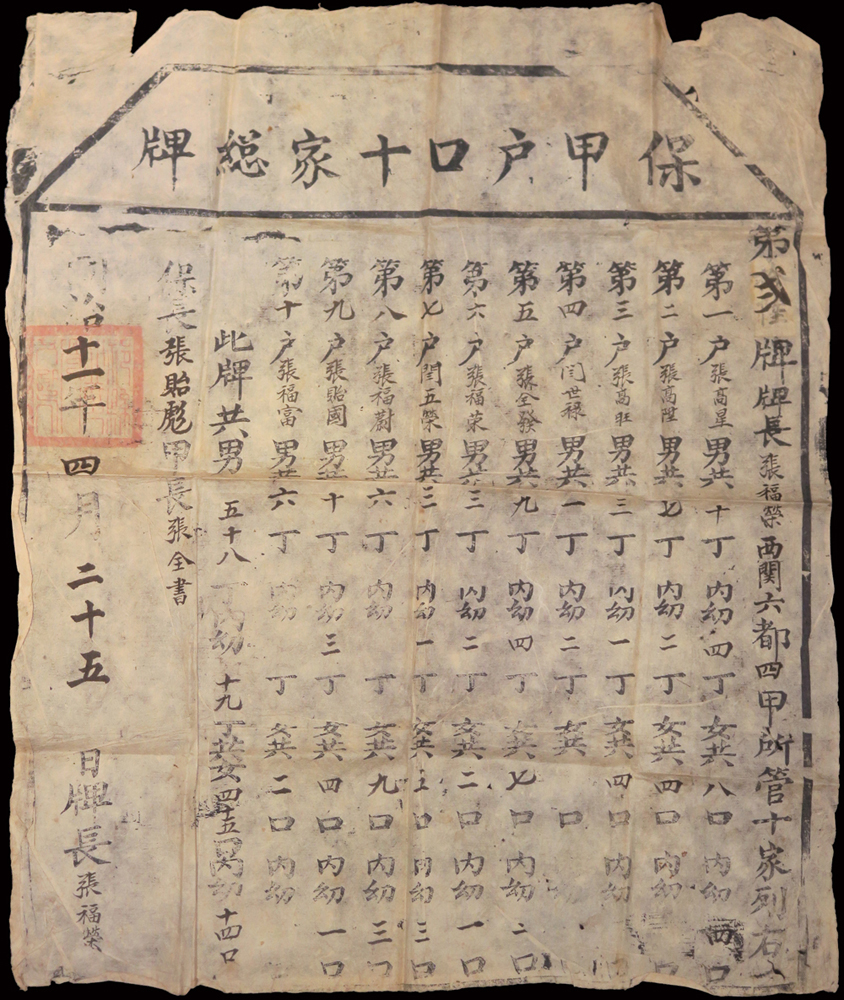 保甲户口十家總牌
第弍牌牌長張福榮西関六都四甲所管十家列右
第一户張高星男共十丁内幼四丁女共八口内幼四口
第二户張高陞男共七丁内幼二丁女共四口内幼口
第三户張高旺男共三丁内幼一丁女共四口内幼口
第四户闫世禄男共一丁内幼二丁女共口内幼口
第五户張全發男共九丁内幼四丁女共七口内幼二口
第六户張福荣男共三丁内幼二丁女共二口内幼一口
第七户閆五榮男共三丁内幼一丁女共五口内幼三口
第八户張福蔚男共六丁内幼丁女共九口内幼三口
第九户張貽國男共十丁内幼三丁女共四口内幼一口
第十户張福富男共六丁内幼丁女共二口内幼口
此牌共男五十八丁内幼十九丁共女四十五口内幼十四口
保長張貽彪甲長張全書
同治十一年四月二十五日牌長張福榮